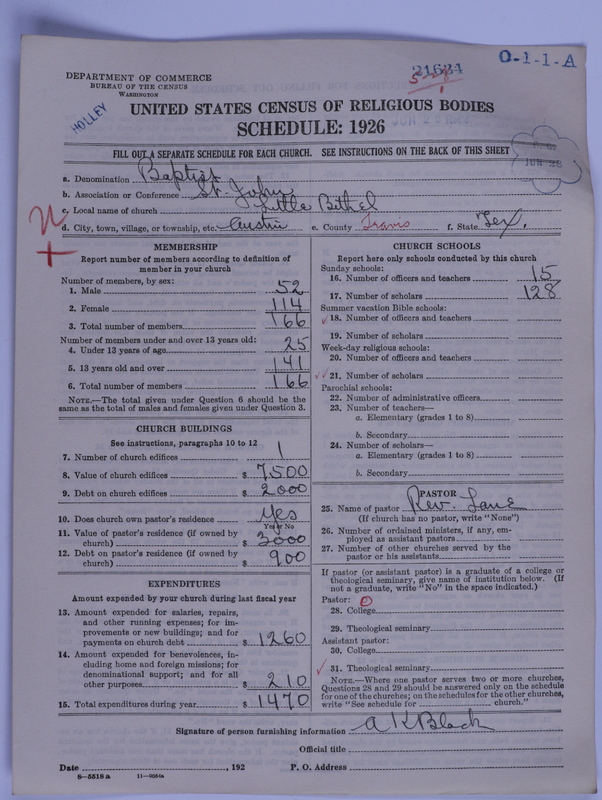 21634
O-1-1-A
DEPARTMENT OF COMMERCE
BUREAU OF THE CENSUS
WASHINGTON
HOLLEY
UNITED STATES CENSUS OF RELIGIOUS BODIES
SCHEDULE: 1926
FILL OUT A SEPARATE SCHEDULE FOR EACH CHURCH. SEE INSTRUCTIONS ON THE BACK OF THIS SHEET
a. Denomination Baptist
b. Association or Conference St. Johns
c. Local name of church Little Bethel
d. City, town, village, or township, etc. Austin e. County Travis f. State Tex.
MEMBERSHIP
Report number of members according to definition of
member in your church
Number of members, by sex:
1. Male 52
2. Female 114
3. Total number of members 166
Number of members under and over 13 years old:
4. Under 13 years of age 25
5. 13 years old and over 141
6. Total number of members 166
NOTE.—The total given under Question 6 should be
the same as the total of males and females given under Question 3.
CHURCH BUILDINGS
See instructions, paragraphs 10 to 12
7. Number of church edifices 1
8. Value of church edifices $ 7500
9. Debt on church edifices $ 2000
10. Does church own pastor's residence Yes
Yes or No
11. Value of pastor's residence (if owned by
church) $ 3000
12. Debt on pastor's residence (if owned by
church) $ 900
EXPENDITURES
Amount expended by your church during last fiscal year
13. Amount expended for salaries, repairs,
and other running expenses; for im-
provements or new buildings; and for
payments on church debt $ 1260
14. Amount expended for benevolences, in-
cluding home and foreign missions; for
denominational support; and for all
other purposes $ 210
15. Total expenditures during year $ 1470
CHURCH SCHOOLS
Report here only schools conducted by this church
Sunday schools:
16. Number of officers and teachers 15
17. Number of scholars 128
Summer vacation Bible schools:
18. Number of officers and teachers
19. Number of scholars
Week-day religious schools:
20. Number of officers and teachers
21. Number of scholars
Parochial schools:
22. Number of administrative officers
23. Number of teachers—
a. Elementary (grades 1 to 8)
b. Secondary
24. Number of scholars—
a. Elementary (grades 1 to 8)
b. Secondary
PASTOR
25. Name of pastor Rev. Lane
(If church has no pastor, write "None")
26. Number of ordained ministers, if any, em-
ployed as assistant pastors
27. Number of other churches served by the
pastor or his assistants
If pastor (or assistant pastor) is a graduate of a college or
theological seminary, give name of institution below. (If
not a graduate, write "No" in the space indicated.)
Pastor: 0
28. College
29. Theological seminary
Assistant pastor:
30. College
31. Theological seminary
NOTE.—Where one pastor serves two or more churches,
Questions 28 and 29 should be answered only on the schedule
for one of the churches; on the schedules for the other churches,
write "See schedule for church."
Signature of person furnishing information A K Black
Official title
Date , 192 P. O. Address
8-5518 a 11-9054a